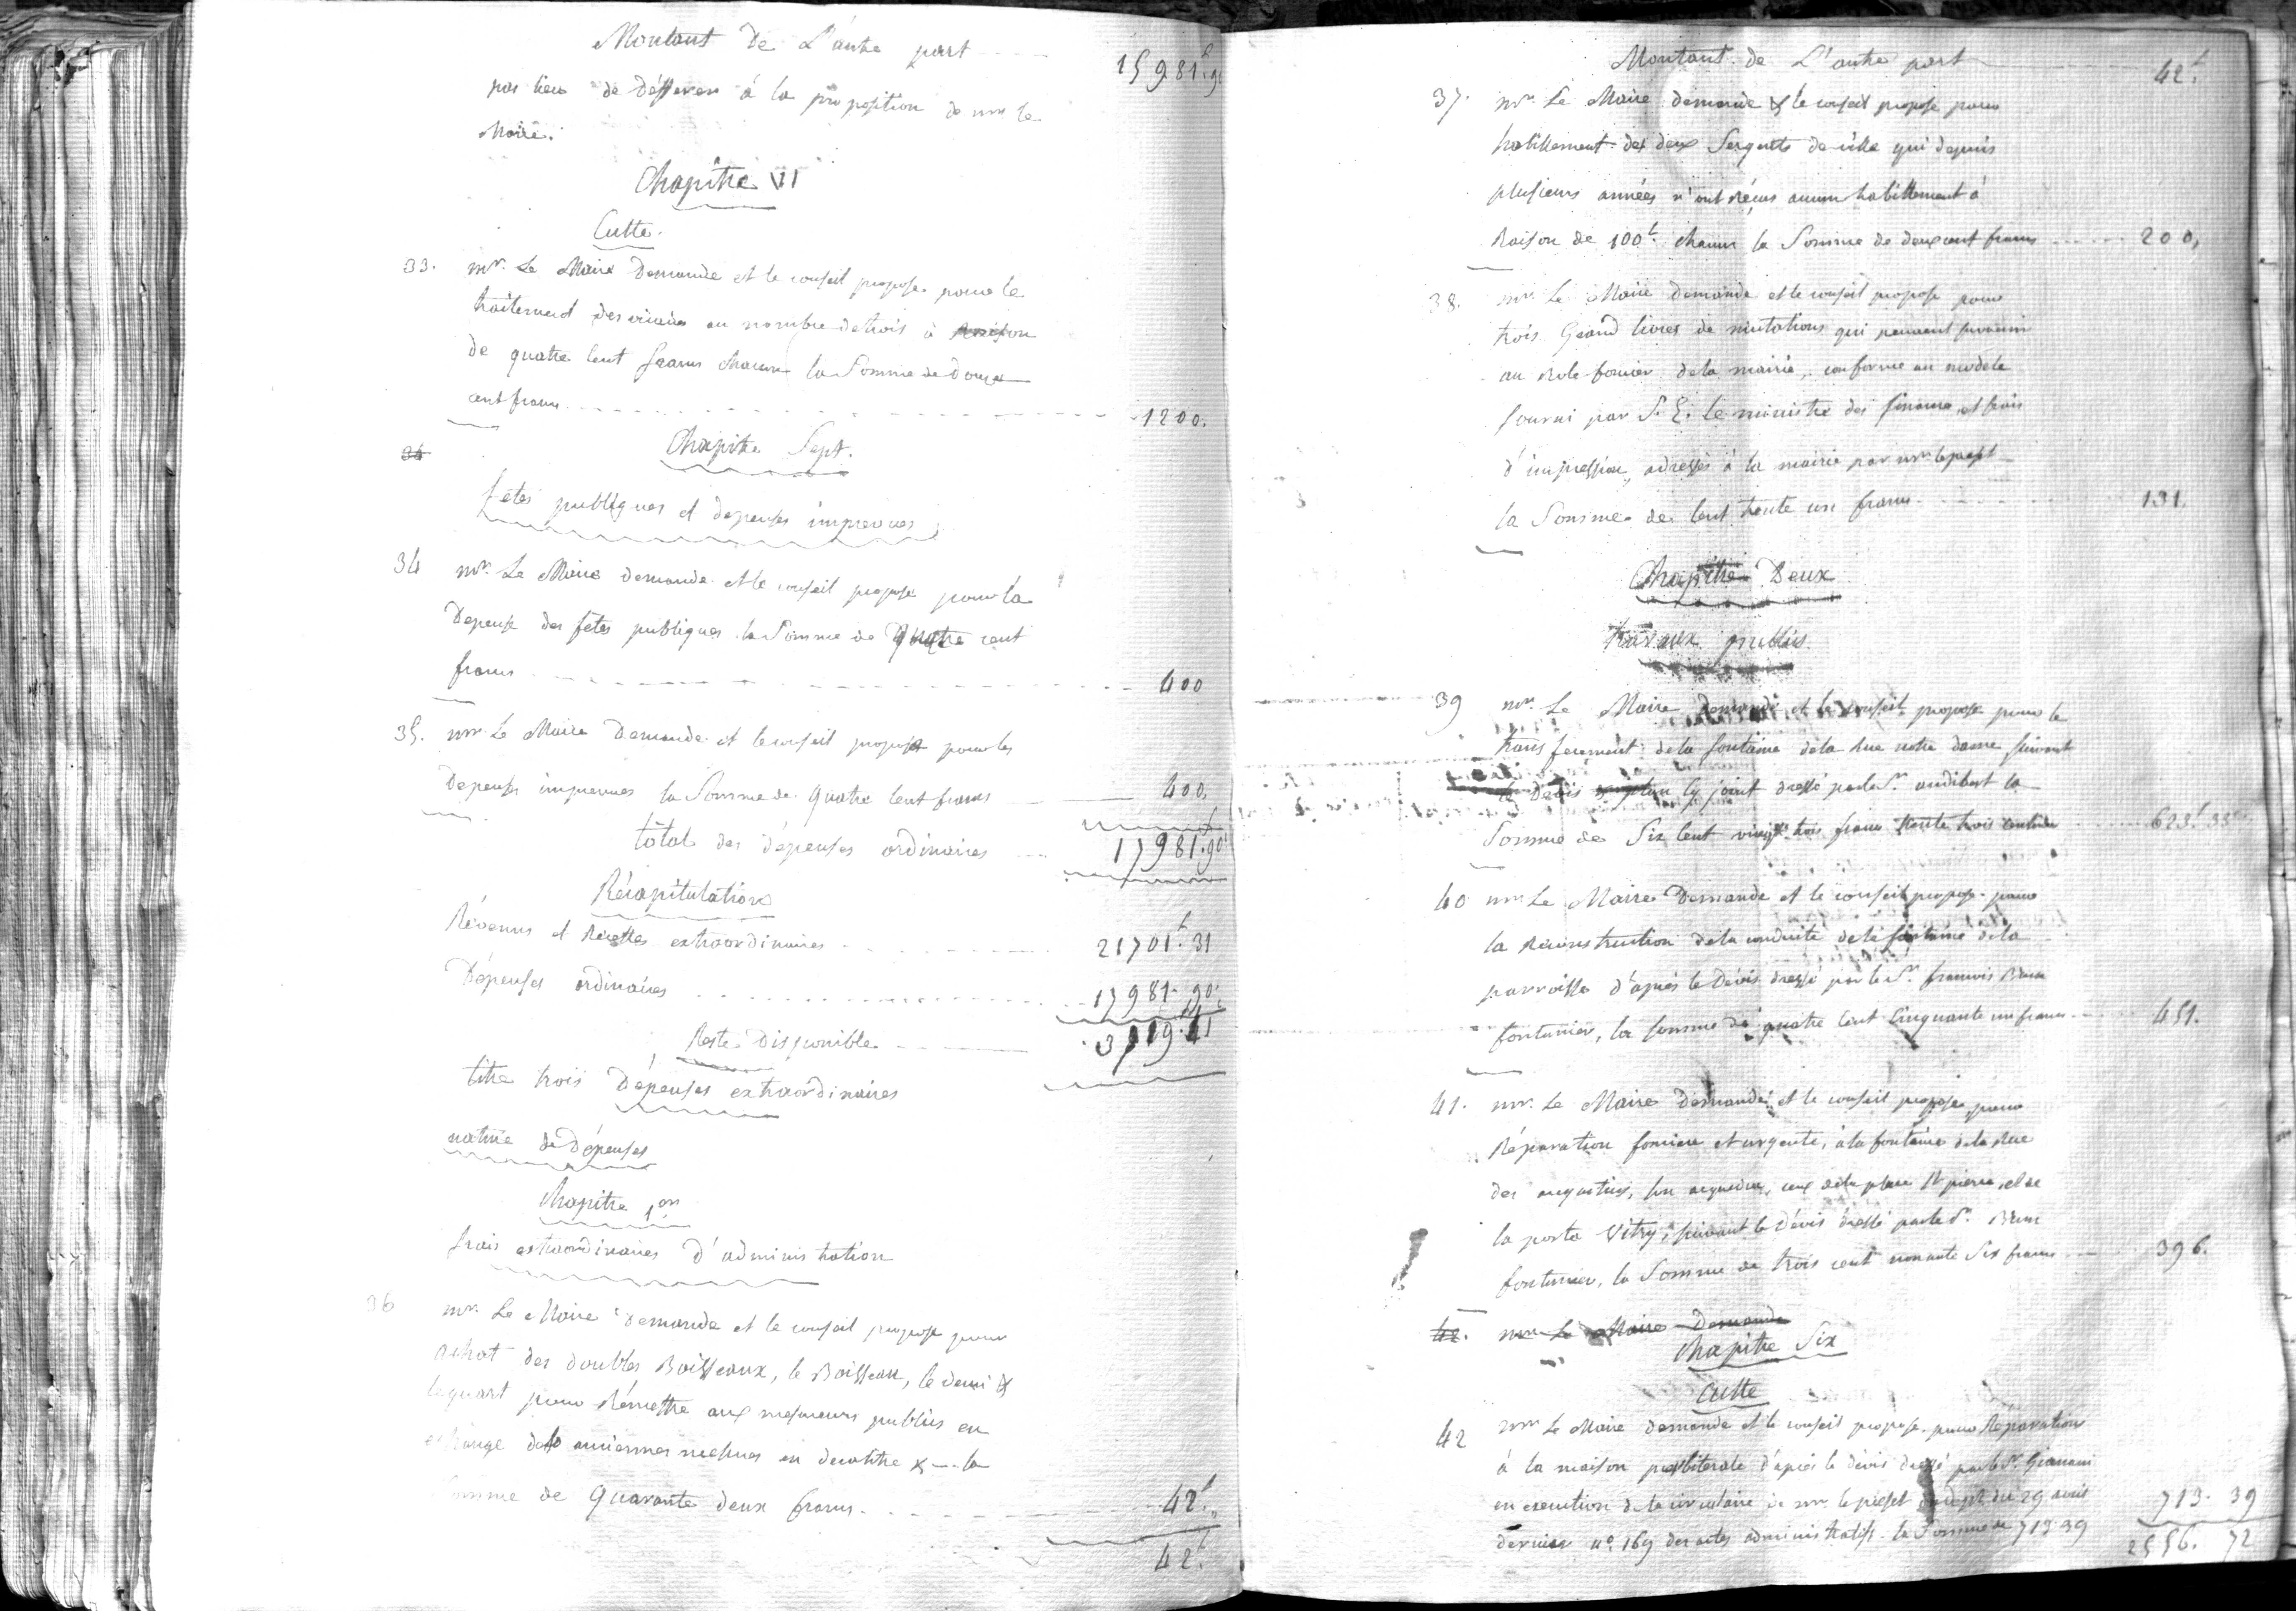 Montant de L'autre part 15981.f 9
pas lieu de déférer à la proposition de mr le
Maire.
Chapitre VI
Culte.
33. mr. Le Maire Demande et le conseil propose pour le
traitement des vicaires au nombre de trois à Raison
de quatre Cent francs chacun la Somme de Douze
cent francs 1200.
34
Chapitre Sept.
fêtes publiques et depenses imprevues
34 mr. Le Maire demande et le conseil propose pour la
Depense des fêtes publiques la Somme de Quatre cent
francs 400
35. mr. Le Maire Demande et le conseil propose pour les
Depenses imprevues la Somme de Quatre Cent francs 400.
total des dépenses ordinaires 17981.f 90
Récapitulation
Révenus et Récettes extraordinaires 21701.f 31
Dépenses ordinaires 17981. 90
Reste Disponible 3719.41
titre trois Dépenses extraordinaires
nature de Dépenses
Chapitre 1er
frais extraordinaires d'administration
36 mr. Le Maire Demande et le conseil propose pour
achat des doubles Boisseaux, le Boisseau, le demi &
le quart pour Rémettre aux mesureurs publics en
échange des anciennes mesures en decalitre & la
Somme de Quarante deux francs. 42.f
42.f
Montant de L'autre part 42.f
37. mr. Le Maire demande & le conseil propose pour
habillement des deux Sergents de ville qui depuis
plusieurs années n'ont réçus aucun habillement à
Raison de 100f. chacun la Somme de deux cent francs 200,
38. mr. Le Maire demande et le conseil propose pour
trois Grand livres de mutations qui peuvent servir
au Role foncier de la mairie, conforme au modele
fourni par S. E. le ministre des finances, et frais
d'impression, adressés à la mairie par mr le prefet
la Somme de Cent trente un francs. 131.
Chapitre Deux
travaux publics.
39 mr. Le Maire Demande et le conseil propose pour le
transferement de la fontaine de la Rue notre dame, suivant
le Devis & plan Cy joint dressé par le Sr. audibert la
Somme de Six Cent vingt trois francs trente trois centimes 623.f 33c
40 mr Le Maire Demande et le conseil propose pour
la Réconstruction de la conduite de la fontaine de la
parroisse d'après le Dévis dressé par le Sr. francois Brun
fontainier, la somme de quatre Cent Cinquante un francs 451.
41. mr. Le Maire Demande et le conseil propose pour
Réparation fonciere et urgente, à la fontaine de la Rue
des augustins, ceux de la place St pierre, et de
la porte Vitry, suivant le Dévis dressé par le Sr. Brun
fontainier, la Somme de trois cent nonante Six francs 396.
42. mr Le Maire Demande
Chapitre Six
Culte
42 mr Le Maire demande et le conseil propose pour Réparations
à la maison presbiterale d'après le dévis dressé par le Sr. Gianani
en execution de la circulaire de mr. le prefet du 29 avril
dernier no. 169 des actes administratifs. la Somme de 713.39 713. 39
2556. 72